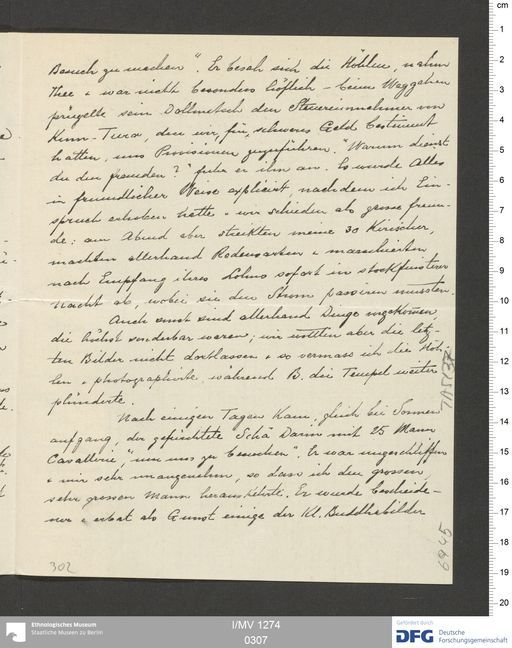 Besuch zu machen“. Er besah sich die Höhlen, nahm
Thee & war nicht besonders höflich – beim Weggehen
prügelte sein Dollmetsch den Steuereinnehmer von
Kum-Tura, den wir für schweres Geld bestimmt
hatten, uns Provisionen zuzuführen. „Warum dienst
du den fremden?“ fuhr er ihn an. Es wurde Alles
in freundlicher Weise explicirt, nachdem ich Ein-
spruch erhoben hatte & wir schieden als grosse freun-
de: am Abend aber streikten meine 30 Kirischer,
machten allerhand Redensarten & marschierten
nach Empfang ihres Lohns sofort in stockfinsterer
Nacht ab, wobei sie den Strom passiren mussten.
Auch sonst sind allerhand Dinge vorgekommen,
die höchst sonderbar waren; wir wollten aber die letz-
ten Bilder nicht dortlassen & so vermass ich die Höh-
len & photographirte, während B. die Tempel weiter
plünderte.
Nach einigen Tagen kam, gleich bei Sonnen-
aufgang, der gefürchtete Schä Darin mit 25 Mann
Cavallerie, „um uns zu besuchen“. Er war ungeschliffen
& mir sehr unangenehm, so dass ich den grossen
sehr grossen Mann herauskehrte. Er wurde bescheide-
ner & erbat als Gunst einige der Kl. Buddhabilder
302
6945
cm
1
2
3
4
5
6
7
8
9
10
11
12
13
14
15
16
17
18
19
20
Ethnologisches Museum
Staatliche Museen zu Berlin
I/MV 1274
0307
Gefördert durch
DFG
Deutsche
Forschungsgemeinschaft